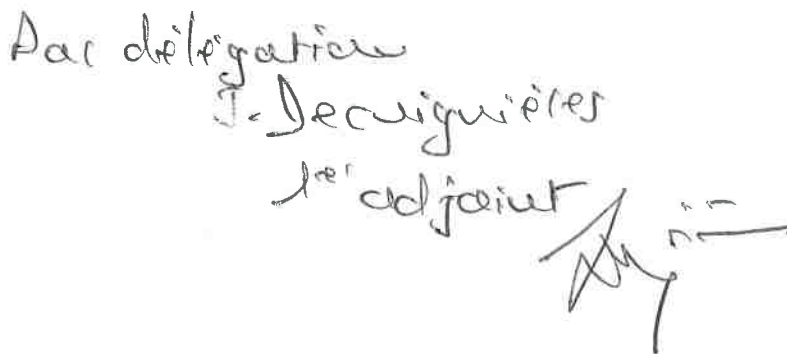 Par délégation
J. Decuignières
1er adjoint